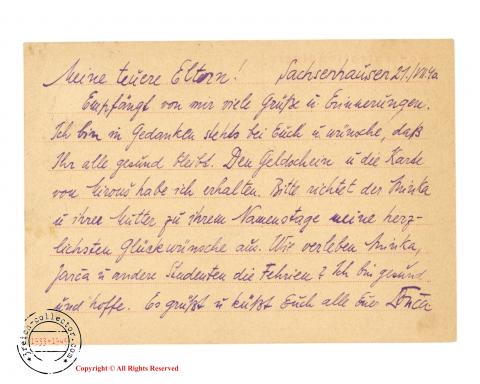 Meine teuere Eltern! Sachsenhausen 21./VII 40
Empfängt von mir viele Grüße u Erinnerungen.
Ich bin in Gedanken stehts bei Euch u wünsche, daß
Ihr alle gesund bleibt. Den Geldschein u die Karte
von habe ich erhalten. Bitte richtet der Minka
u ihrer Mutter zu ihrem Namenstage meine herz-
lichsten Glückwünsche aus. Wie verleben Minka,
Jarča u andere Studenten die Fehrien? Ich bin gesund
und hoffe. Es grüßt u küßt Euch alle Eue
3reich-collector.com
1933-1945
Copyright © All Rights Reserved